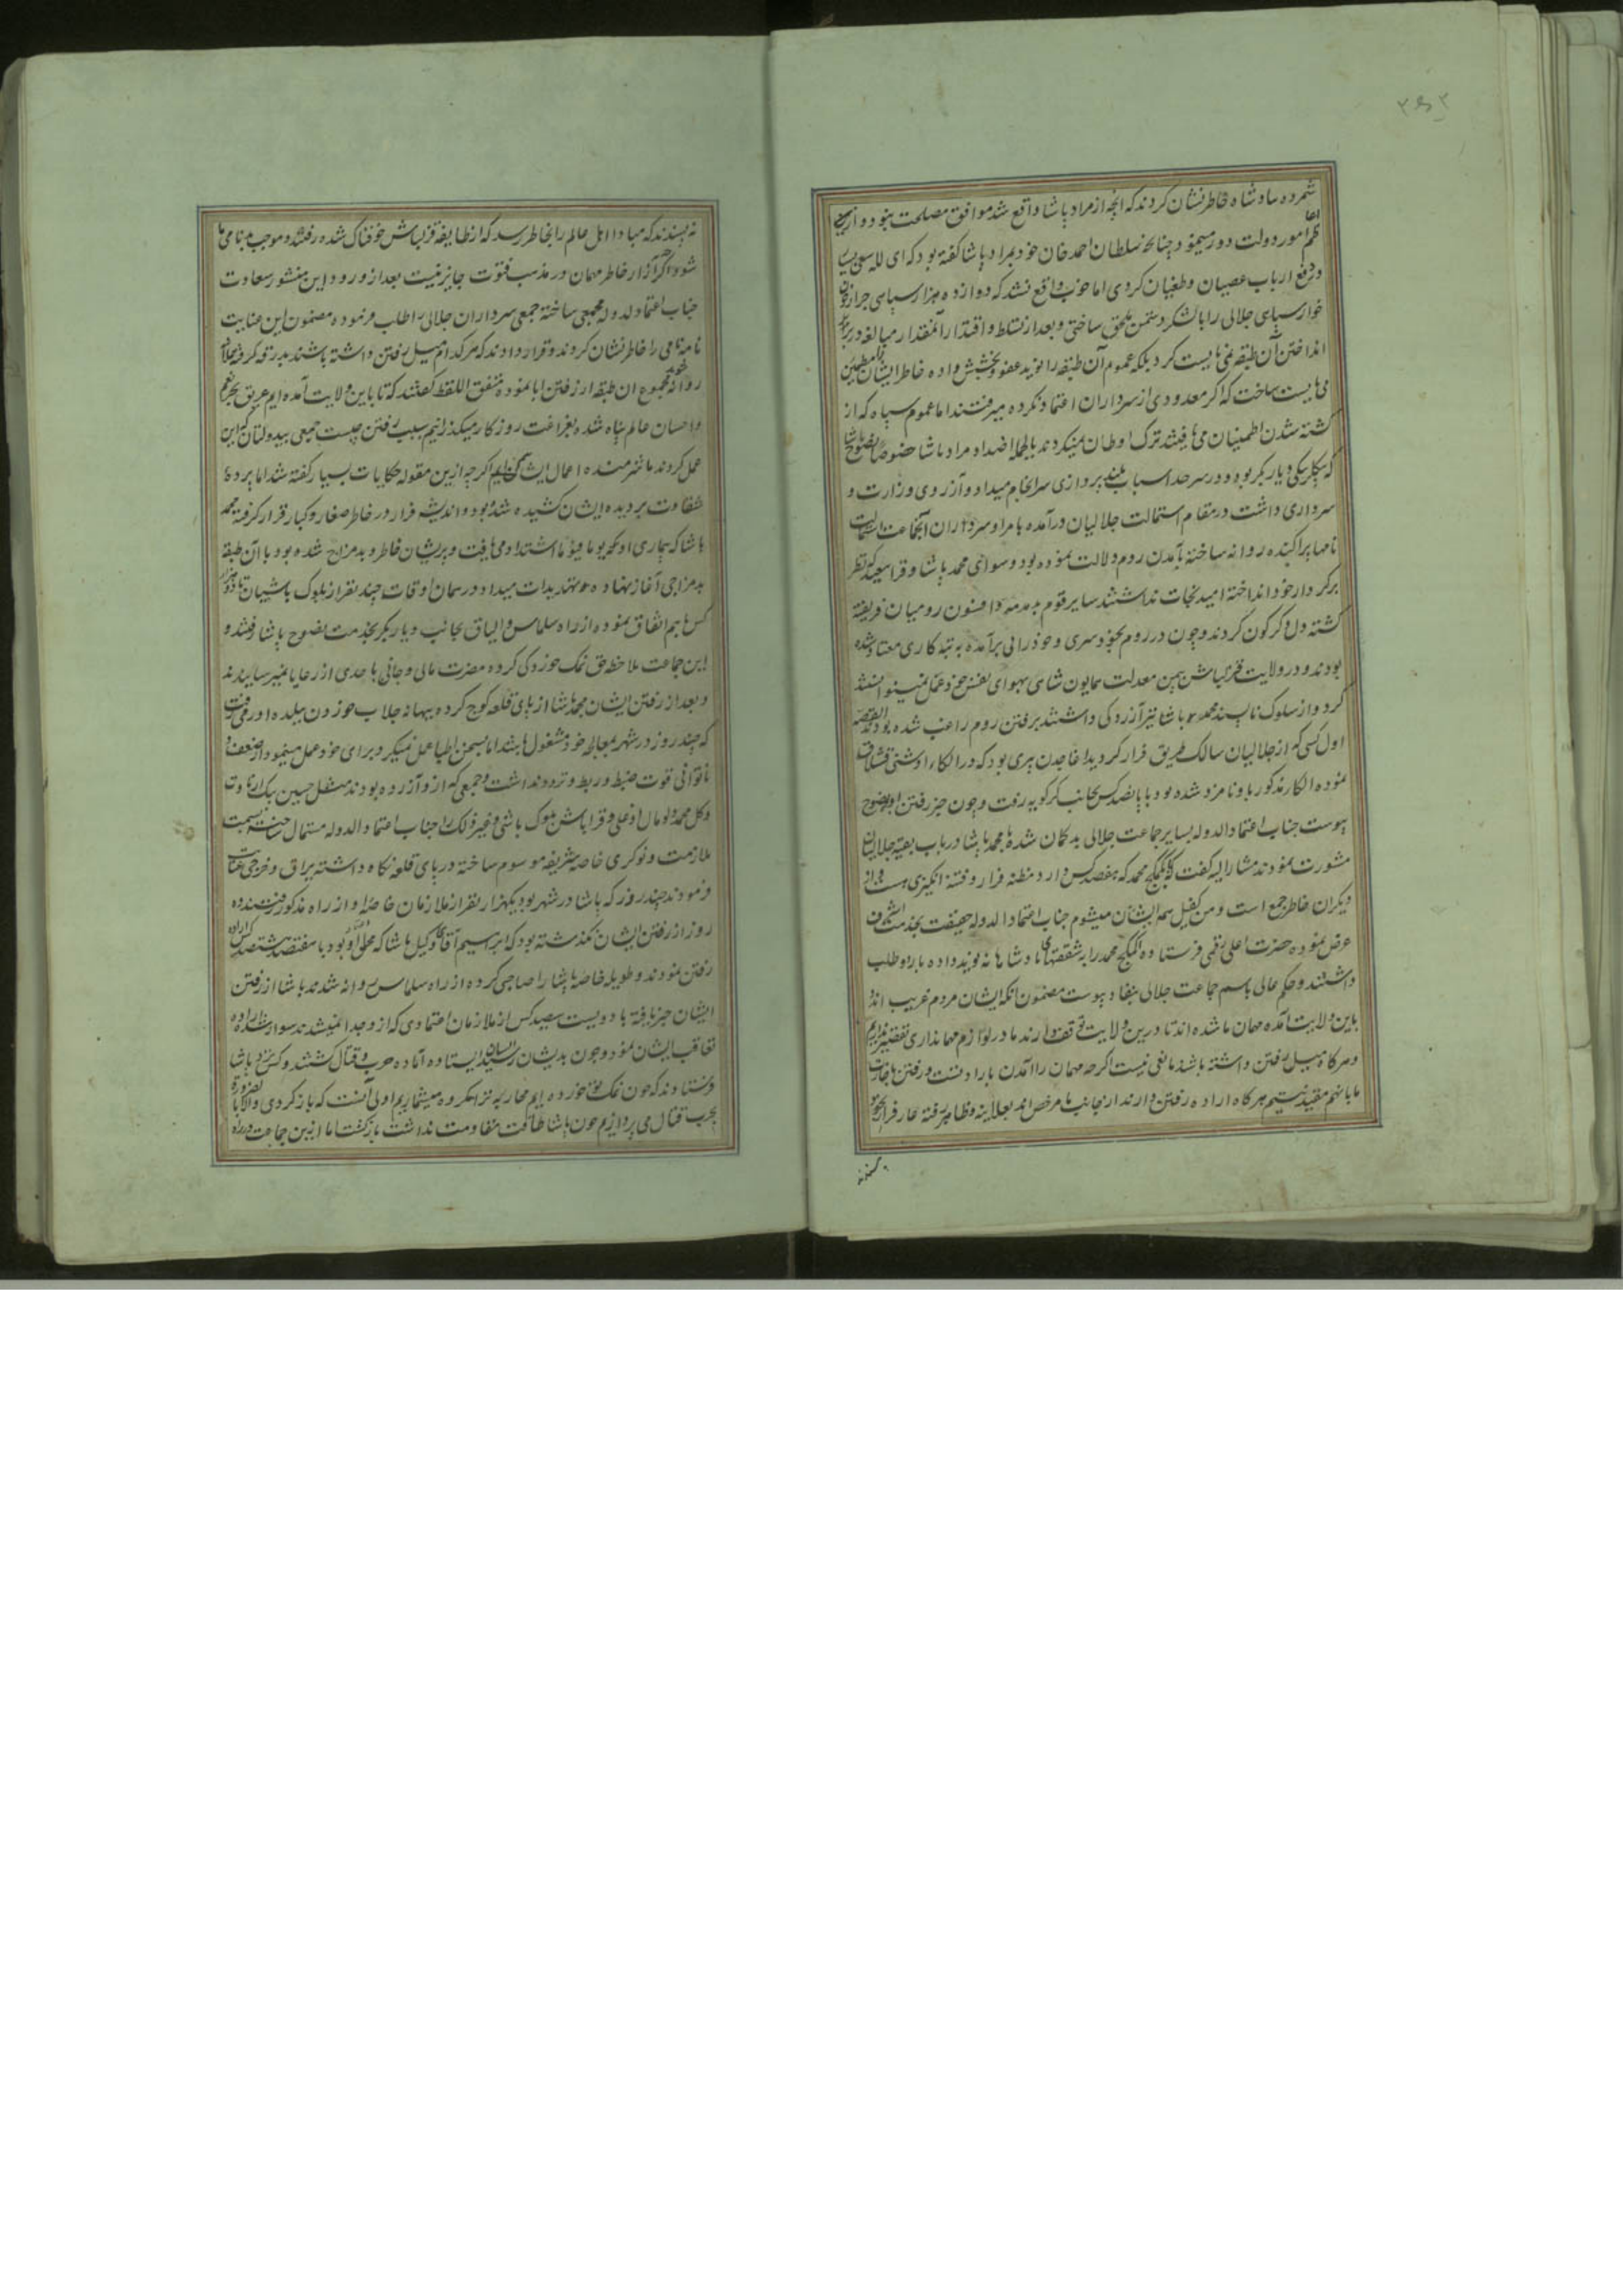 شمرده پادشاه خاطرنشان کردند که آنچه از مراد پاشا واقع شد موافق مصلحت نبود و از
امور دولت دور مینمود چنانچه سلطان احمد خان خود بمراد پاشا گفته بود که ای لله سعی بسیار
در دفع ارباب عصیان و طغیان کردی اما خوب واقع نشد که دوازده هزار سپاهی جرار
خوار سپاهی جلالی را با لشکر دشمن ملحق ساختی و بعد از تسلط و اقتدار آنمقدار مبالغه در بر
انداختن آن طبقه نمی بایست کرد بلکه عموم آن طبقه را نوید عفو و بخشش داده خاطر ایشان را مطمئن
می بایست ساخت که اگر معدودی از سرداران اعتماد نکرده میرفتند اما عموم سپاه که از
کشته شدن اطمینان می یافتند ترک اوطان نمیکردند بالجمله اضداد مراد پاشا خصوصا نصوح پاشا
که بیکلربیکی دیار بکر بود و در سرحد اسباب بلند پروازی سرانجام میداد و آرزوی وزارت و
سرداری داشت در مقام استمالت جلالیان درآمده بامرا و سرداران آنجماعت استمالت
نامها پراکنده روانه ساخته بآمدن روم دلالت نموده بود و سوای محمد پاشا و قرا سعید که نظر
بر کردار خود انداخته امید نجات نداشتند سایر قوم بدمدمه و افسون رومیان فریفته
گشته دل دگرگون کردند و چون در روم بخودسری و خودرائی برآمده به تبه کاری معتاد شده
بودند و در ولایت قزلباش بیمن معدلت همایون شاهی بهوای نفس خود عمل نمیتوانستند
کرد و از سلوک ناپسند محمد پاشا نیز آزردگی داشتند برفتن روم راغب شده بودند القصه
اول کسی که از جلالیان سالک طریق فرار گردید اغاجدن پیری بود که در الکاء اوشنی قشلاق
نموده الکاء مذکور باو نامزد شده بود با پانصد کس بجانب کرکویه رفت و چون خبر رفتن او بوضوح
پیوست جناب اعتماد الدوله بسایر جماعت جلالی بدگمان شده با محمد پاشا در باب بقیه جلالیان
مشورت نمودند مشارالیه گفت که محمد که هفصد کس دارد مظنه فرار و فتنه انگیزی هست و از
دیگران خاطر جمع است و من کفیل همه ایشان میشوم جناب اعتماد الدوله حقیقت بخدمت اشرف
عرض نموده حضرت اعلی رقمی فرستاده محمد را به شفقتهای پادشاهانه نوید داده باردو طلب
داشتند و حکم عالی باسم جماعت جلالی بنفاد پیوست مضمون آنکه ایشان مردم غریب اند
باین ولایت آمده مهمان ما شده اند تا درین ولایت توقف دارند ما در لوازم مهمانداری تقصیر نداریم
و هرگاه میل رفتن داشته باشند مانعی نیست اگرچه مهمان را آمدن بارادتست و رفتن باجازت
ما بآنهم مقید نیستیم هرگاه اراده رفتن دارند از جانب ما مرخص اند بعلانیه و ظاهر رفته عار فرار بخود
نه پسندند که مبادا اهل عالم را بخاطر رسد که از طایفه قزلباش خوفناک شده رفتند و موجب بدنامی ما
شود اگر آزار خاطر مهمان در مذهب فتوت جایز نیست بعد از ورود این منشور سعادت
جناب اعتماد الدوله مجمعی ساخته جمعی سرداران جلالی را طلب فرموده مضمون این عنایت
نامه نامی را خاطرنشان کردند و قرار دادند که هر کدام میل رفتن داشته باشند بدرقه کرده
روانه شود مجموع آن طبقه از رفتن ابا نموده متفق اللفظ گفتند که تا باین ولایت آمده ایم غریق بحر نعم
و احسان عالم پناه شده بفراغت روزگار میگذرانیم سبب رفتن چیست جمعی بیدولتان که این
عمل کردند ما شرمنده اعمال ایشان ایم اگرچه ازین مقوله حکایات بسیار گفته شد اما پرده
شقاوت بر دیده ایشان کشیده شده بود و اندیشه فرار در خاطر صغار و کبار قرار گرفته محمد
پاشا که بیماری او یوما فیوما اشتداد می یافت و پریشان خاطر و بدمزاج شده بود با آن طبقه
بدمزاجی آغاز نهاده تهدیدات میداد در همان اوقات چند نفر از بلوک باشیان با دو هزار
کس باهم اتفاق نموده از راه سلماس و الباق بجانب دیار بکر بخدمت نصوح پاشا رفتند و
این جماعت ملاحظه حق نمک خوردگی کرده مضرت مالی و جانی باحدی از رعایا نمیرسانیدند
و بعد از رفتن ایشان محمد پاشا از پای قلعه کوچ کرده ببهانه جلاب خوردن ببلده ارومی رفت
که چند روز در شهر بمعالجه خود مشغول باشد اما بسخن اطبا عمل نمیکرد و برای خود عمل مینمود و از ضعف و
ناتوانی قوت ضبط و ربط و تردد نداشت و جمعی که ازو آزرده بودند مثل حسین بیک ارناوت
و کل محمد اوغلی و قراباش بلوک باشی و غیر ذلک را جناب اعتماد الدوله مستمال ساخته بسمت
ملازمت و نوکری خاصه شریفه موسوم ساخته در پای قلعه نگاه داشته یراق و خرجی عنایت
فرمودند چند روز که پاشا در شهر بود یکهزار نفر از ملازمان خاصه او از راه مذکور رفتند ده
روز از رفتن ایشان گذشته بود که ابراهیم آقای وکیل پاشا که محل اعتماد او بود با هفتصد هشتصد کس اراده
رفتن نمودند و طویله خاصه پاشا را صاحبی کرده از راه سلماس روانه شدند پاشا از رفتن
ایشان خبر یافته با دویست سیصد کس از ملازمان اعتمادی که ازو جدا نمیشدند سوار شده اراده
تعاقب ایشان نمود و چون بدیشان رسید ایشان ایستاده آماده حرب و قتال گشتند و کس نزد پاشا
فرستادند که چون نمک تو خورده ایم محاربه ترا مکروه میشماریم اولی آنست که بازگردی و الا بالضروره
بحرب و قتال می پردازیم چون پاشا طاقت مقاومت نداشت بازگشت اما ازین جماعت